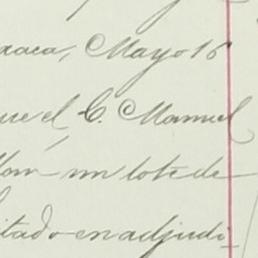 axaca, Mayo 16
que el C. Manuel
un lote de
itado en adjudi-